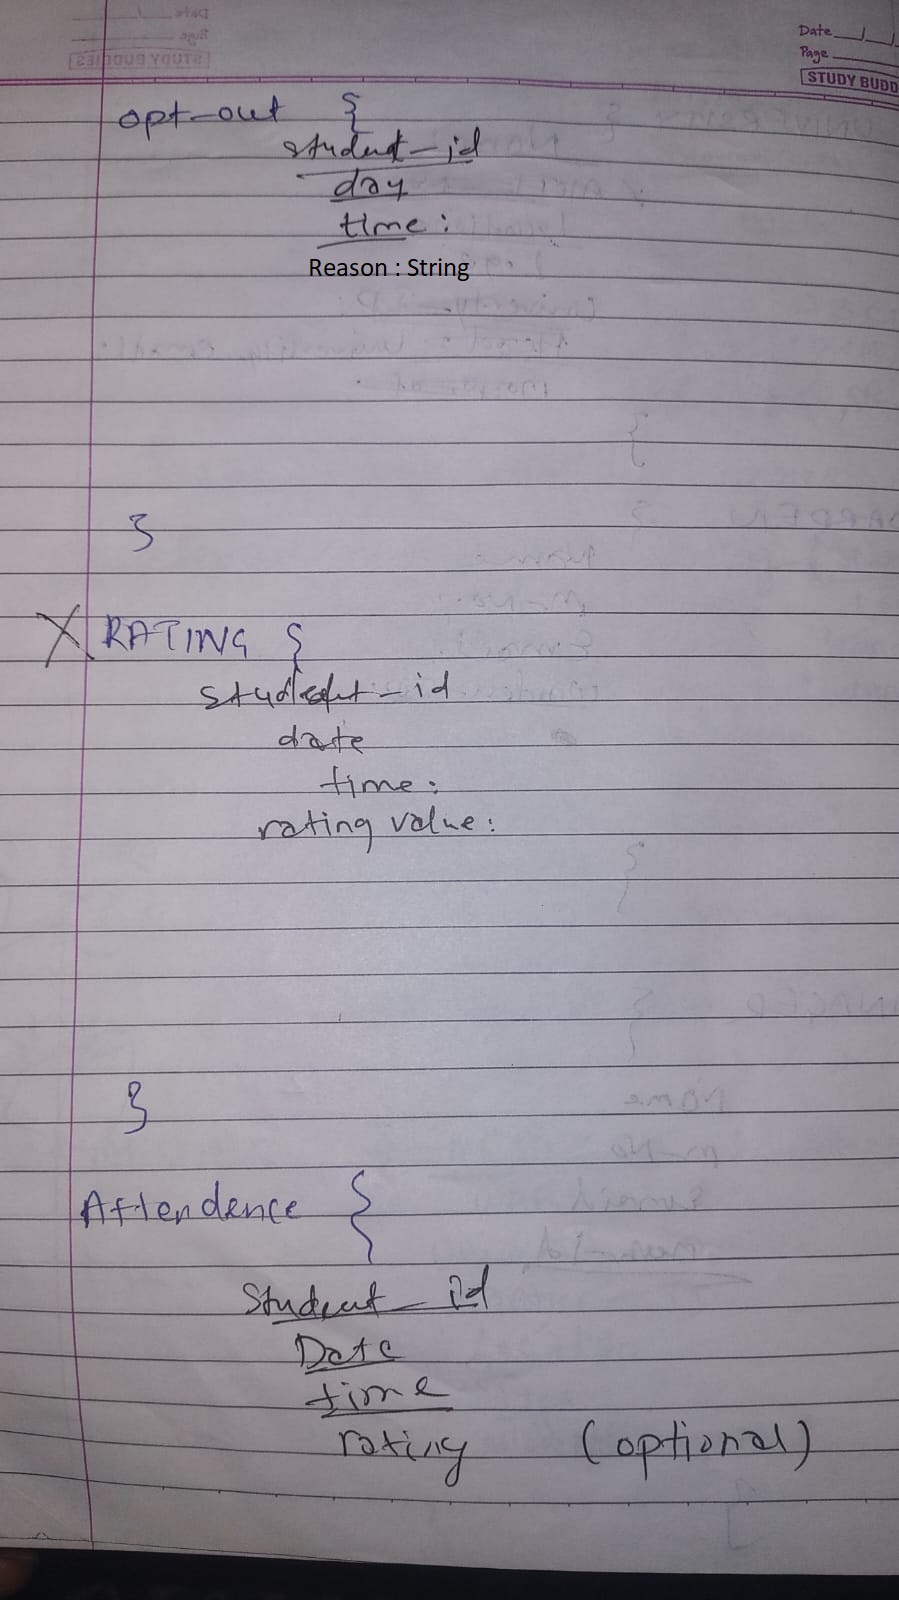 Date
Page
STUDY BUDD
opt-out {
student-id
day
time:
Reason : String
}
X RATING {
student-id
date
time:
rating value:
}
Attendence {
Student-id
Date
time
rating (optional)